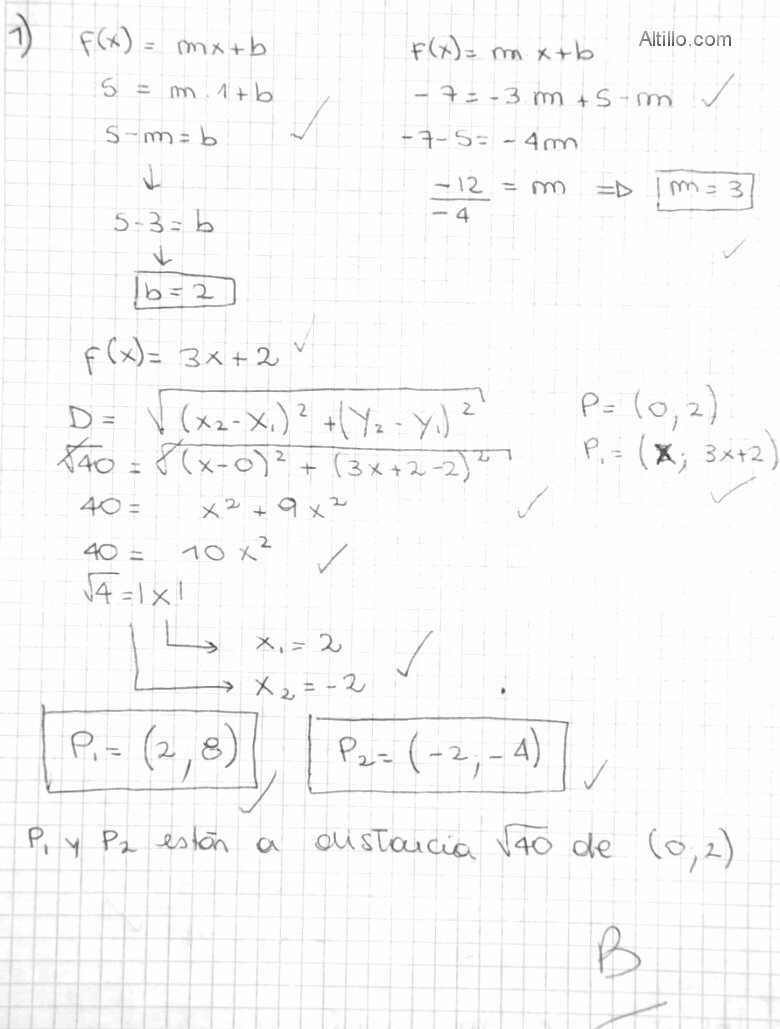 Altillo.com
1)
F(x) = mx+b
5 = m.1+b
5-m=b
↓
5-3=b
↓
b=2
F(x)= m x+b
-7=-3m+5-m
-7-5=-4m
-12/-4 = m ⇒ m=3
F(x)= 3x+2
D= √(x₂-x₁)²+(y₂-y₁)²
√40 = √(x-0)² + (3x+2-2)²
40= x²+9x²
40= 10x²
√4=|x|
x₁=2
x₂=-2
P=(0,2)
P₁=(x; 3x+2)
P₁=(2,8)
P₂=(-2,-4)
P₁ y P₂ están a distancia √40 de (0,2)
B